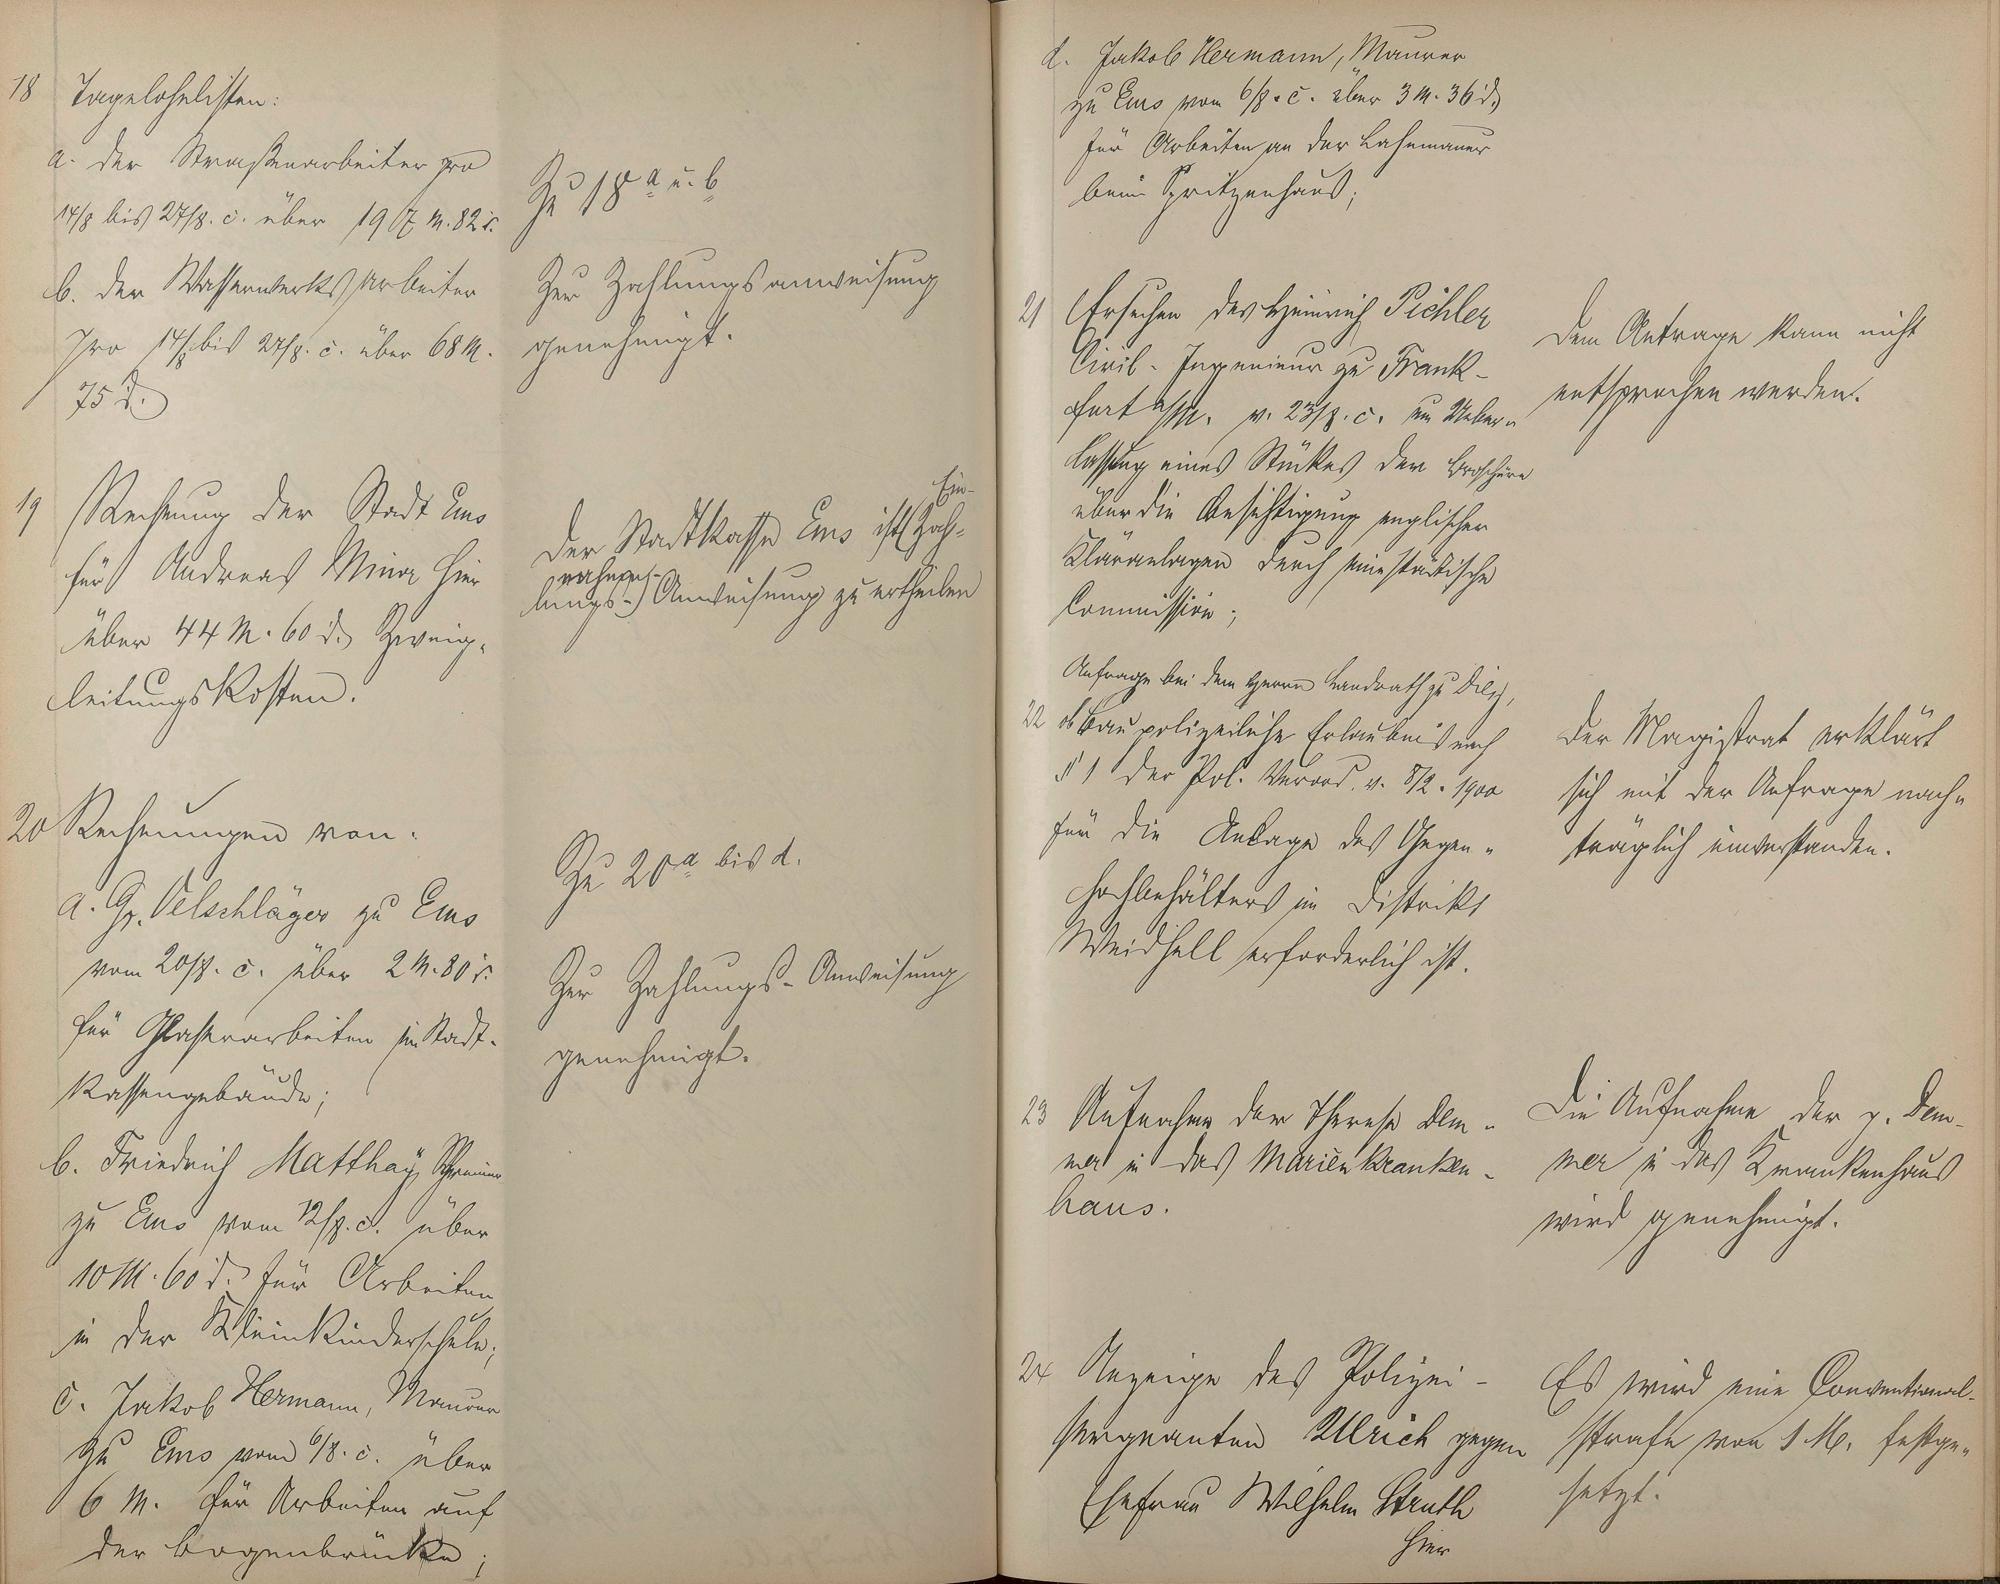 18 Tagelohnlisten:
a. der Straßenarbeiter pro
14/8 bis 27/8. c. über 197 M. 82 d.
b. der Wasserwerksarbeiter
pro 14/8 bis 27/8. c. über 68 M.
75 d.
Zu 18 a u. b
Zur Zahlungsanweisung
genehmigt.
19 Rechnung der Stadt Ems
für Andreas Minor hier
über 44 M. 60 d. Zweig-
leitungskosten.
Ein-
Der Stadtkasse Ems ist (Zah-
nahme-
lungs-) Anweisung zu ertheilen
20 Rechnungen von:
a. Gg. Oelschläger zu Ems
vom 20/8. c. über 2 M. 80 d.
für Glaserarbeiten im Stadt-
kassengebäude;
b. Friedrich Matthäy, Schreiner
zu Ems vom 12/8. c. über
10 M. 60 d. für Arbeiten
in der Kleinkinderschule;
c. Jakob Hermann, Maurer
zu Ems vom 6/8. c. über
6 M. für Arbeiten auf
der Bogenbrücke;
Zu 20 a bis d.
Zur Zahlungs-Anweisung
genehmigt.
d. Jakob Hermann, Maurer
zu Ems vom 6/8. c. über 3 M. 36 d.
für Arbeiten an der Lahnmauer
beim Spritzenhaus;
21 Ersuchen des Heinrich Pichler
Civil-Ingenieur zu Frank-
furt a/M. v. 23/8. c. um Ueber-
lassung eines Stückes der Broschüre
über die Besichtigung englischer
Kläranlagen durch eine städtische
Commission;
Dem Antrage kann nicht
entsprochen werden.
Anfrage bei dem Herrn Landrath zu Diez,
22 ob baupolizeiliche Erlaubnis nach
§ 1 der Pol. Verord. v. 8/2. 1900
für die Anlage des Gegen-
hochbehälters im Distrikt
Weidhell erforderlich ist.
Der Magistrat erklärt
sich mit der Anfrage nach-
träglich einverstanden.
23 Aufnahme der Therese Dem-
mer in das Marienkranken-
haus.
Die Aufnahme der p. Dem-
mer in das Krankenhaus
wird genehmigt.
24 Anzeige des Polizei-
sergeanten Ulrich gegen
Ehefrau Wilhelm Struth
hier
Es wird eine Conventional-
strafe von 1 M. festge-
setzt.